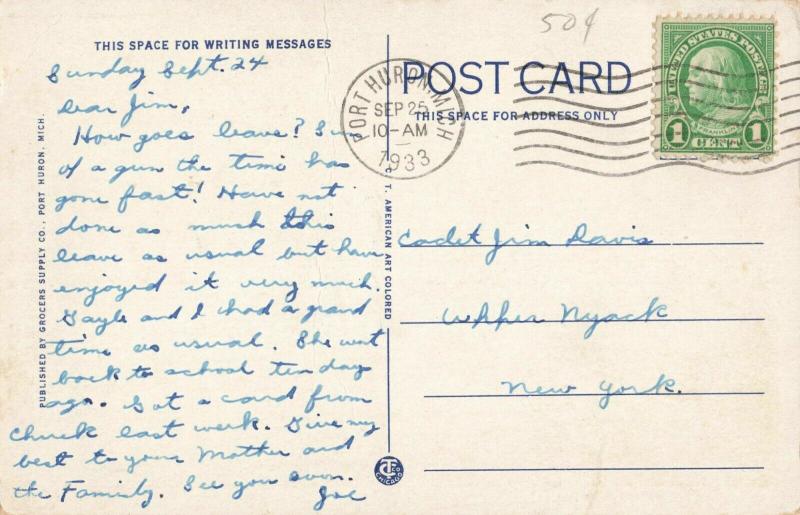 50¢
THIS SPACE FOR WRITING MESSAGES
Sunday Sept. 24
Dear Jim,
How goes leave? Sun
of a gun the time has
gone fast! Have not
done as much this
leave as usual but have
enjoyed it very much.
Gayle and I had a grand
time as usual. She went
back to school ten days
ago. Got a card from
Chuck last week. Give my
best to your Mother and
the Family. See you soon.
Joe
PUBLISHED BY GROCERS SUPPLY CO., PORT HURON, MICH.
C. T. AMERICAN ART COLORED
POST CARD
THIS SPACE FOR ADDRESS ONLY
PORT HURON, MICH
SEP 25
10-AM
1933
UNITED STATES POSTAGE
FRANKLIN
1 CENT 1
Cadet Jim Davis
Upper Nyack
New York.
CT CO
CHICAGO